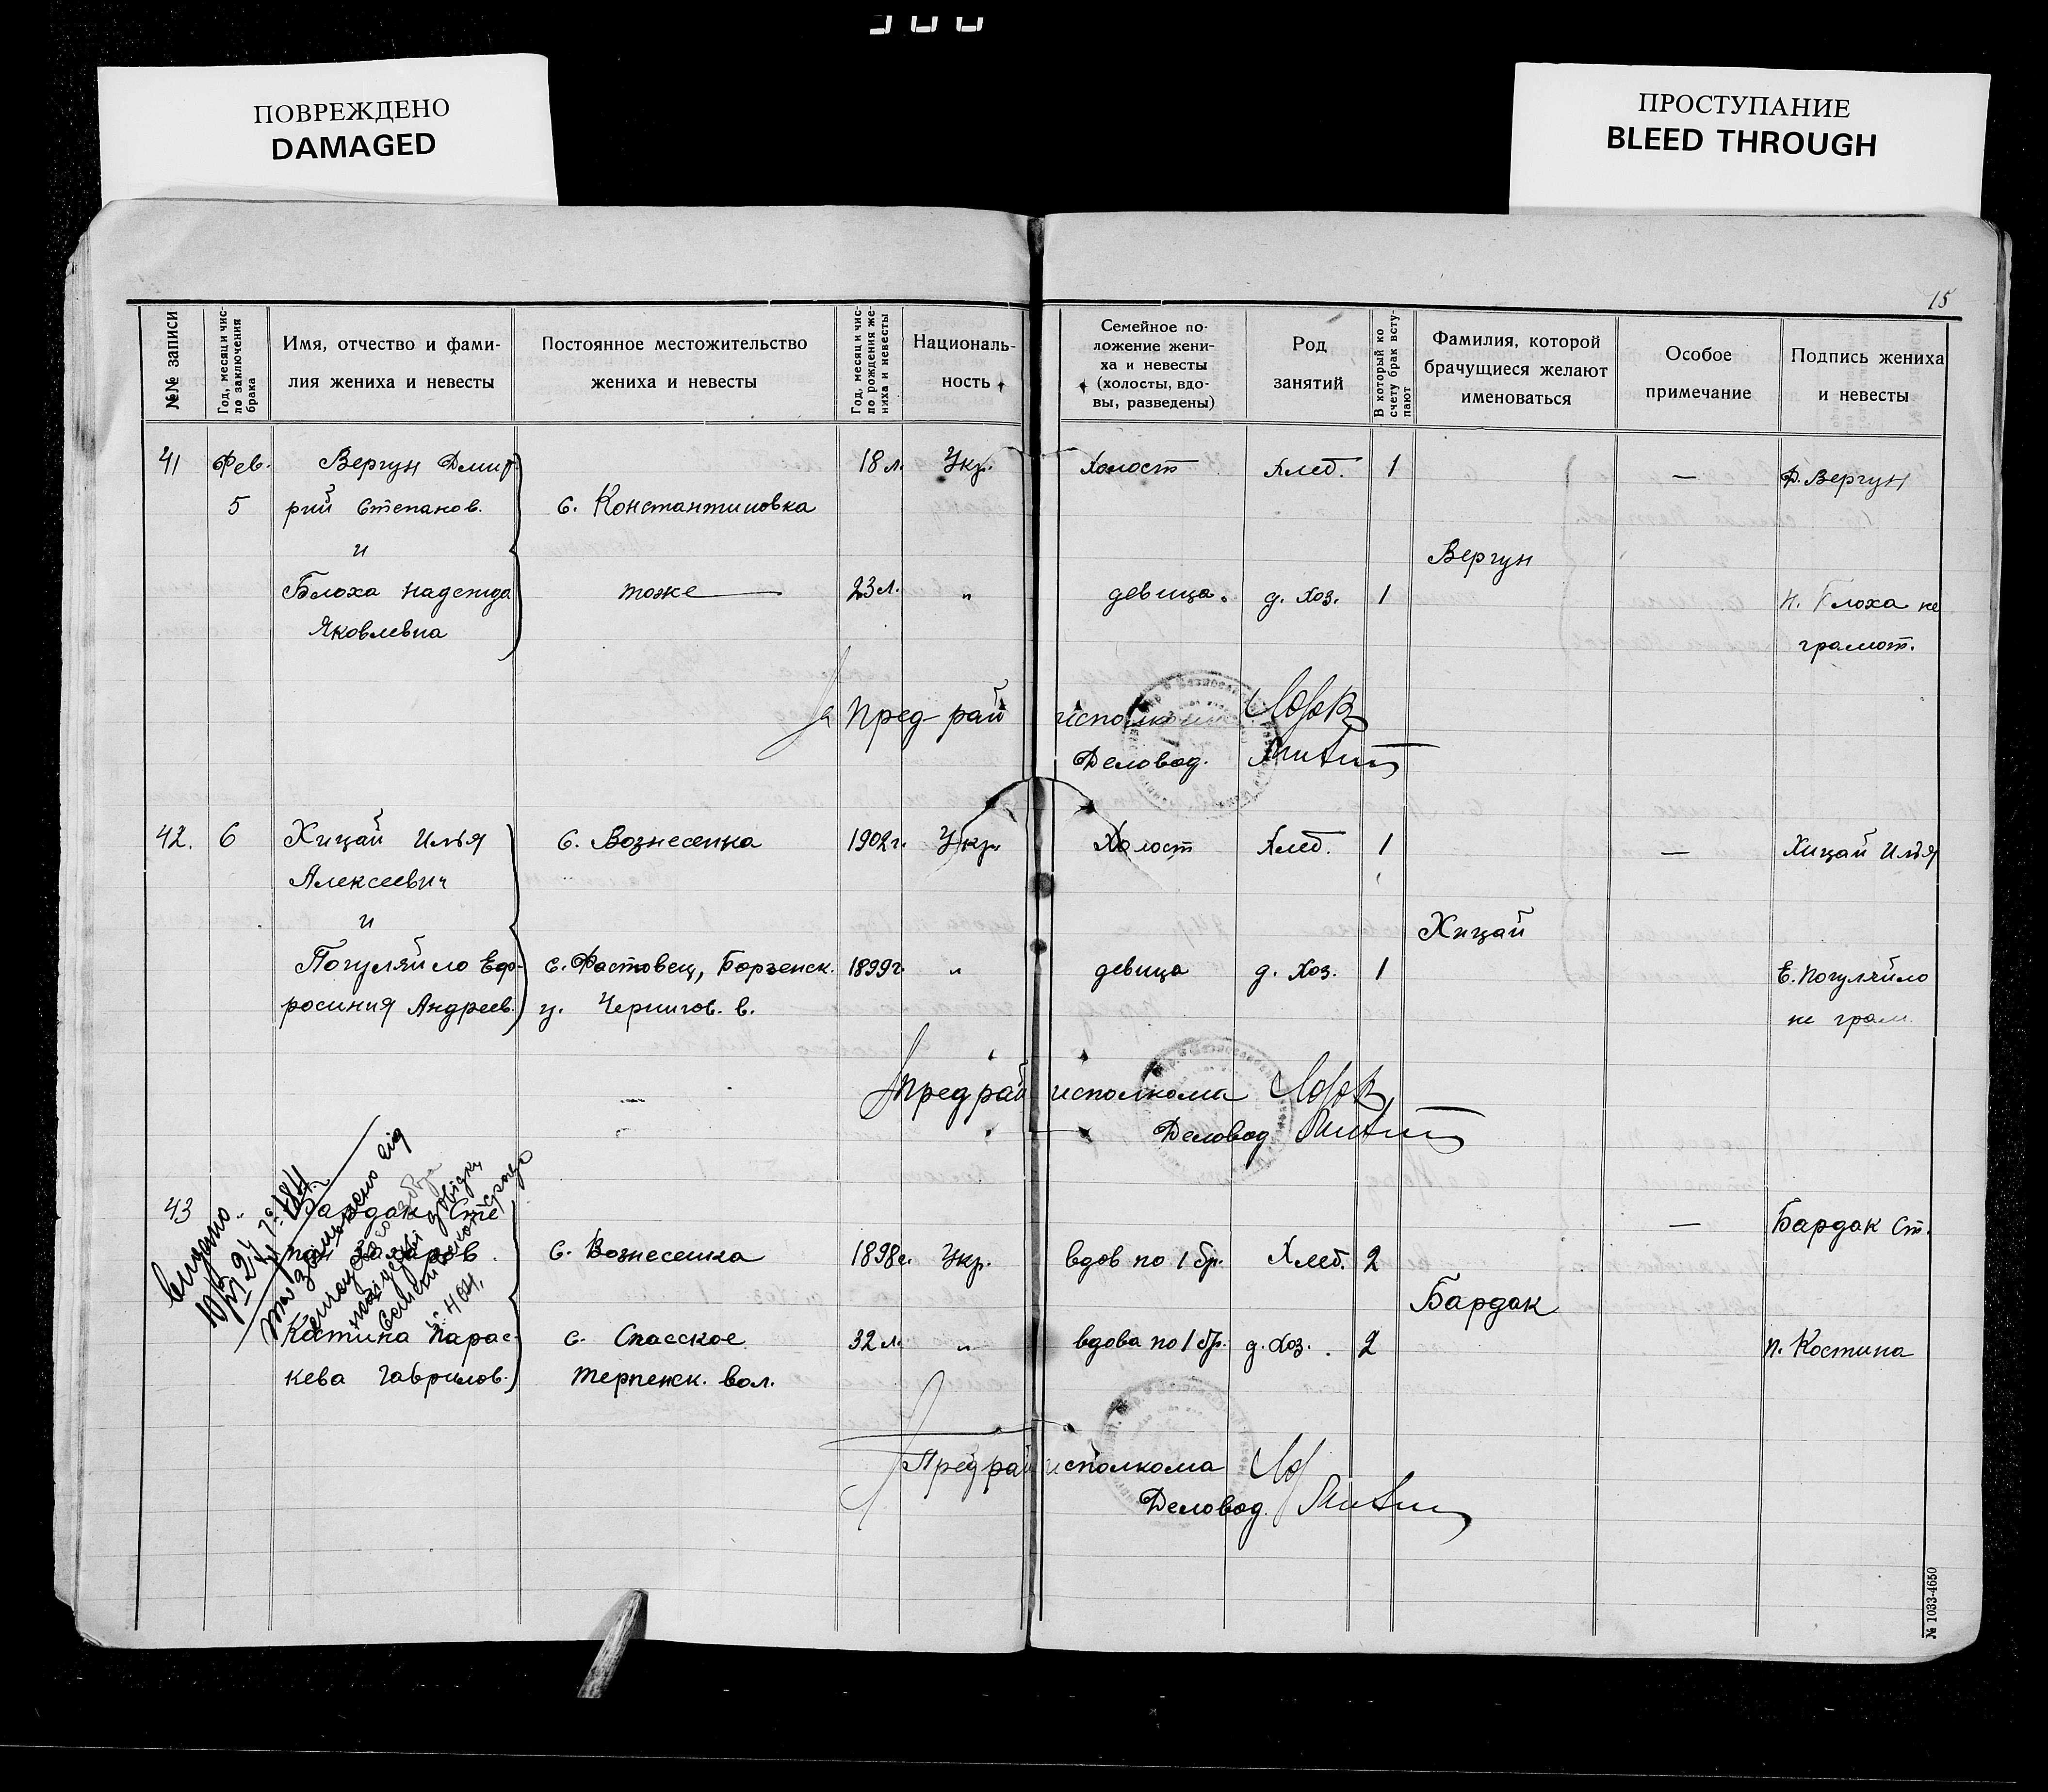 ПОВРЕЖДЕНО
DAMAGED
ПРОСТУПАНИЕ
BLEED THROUGH
15
№№ записи
Год, месяц и число заключения брака
Имя, отчество и фами-
лия жениха и невесты
Постоянное местожительство
жениха и невесты
Год, месяц и чис-
ло рождения же-
ниха и невесты
Националь-
ность
Семейное по-
ложение жени-
ха и невесты
(холосты, вдо-
вы, разведены)
Род
занятий
В который ко
счету брак всту-
пают
Фамилия, которой
брачущиеся желают
именоваться
Особое
примечание
Подпись жениха
и невесты
41 Фев. Вергун Дмит- 18 л. Укр. Холост Хлеб. 1 — Д. Вергун
5 рий Степанов. с. Константиновка
и
Вергун
Блоха Надежда тоже 23 л. " девица. д. хоз. 1 Н. Блоха не
Яковлевна грамот.
Пред-рай исполкома
Деловод.
42. 6 Хицай Илья с. Вознесенка 1902 г. Укр. Холост Хлеб. 1 — Хицай Илья
Алексеевич
и
Хицай
Погуляйло Еф- с. Фастовец, Борзенск. 1899 г. " девица д. хоз. 1 Е. Погуляйло
росиния Андреев. у. Чернигов. г. не грам.
Пред рай исполкома
Деловод
43 Бардак Сте- — Бардак Ст.
пан с. Вознесенка 1898 г. Укр. вдов по 1 бр. Хлеб. 2
Бардак
Костина Парас- с. Спасское 32 л. " вдова по 1 бр. д. хоз. 2 П. Костина
кева Гаврилов. Терпенск. вол.
Видано
Пред рай исполкома
Деловод.
№ 1033-4650